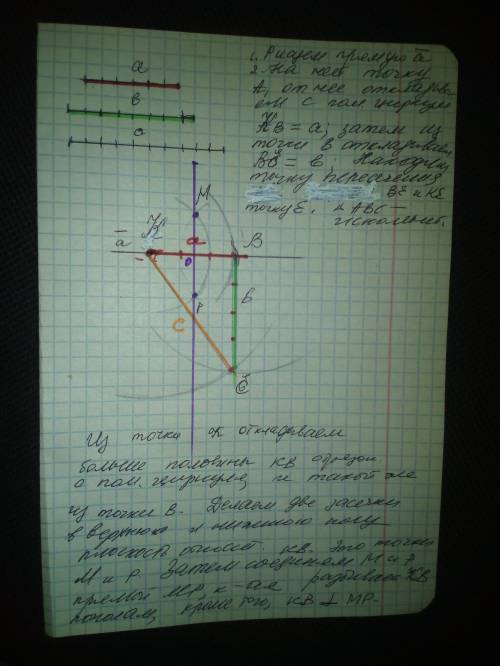 а
в
с
1. Рисуем прямую a
2. На ней точку
А, от нее отклады-
ем с пом. циркуля
КВ = а; затем из
точки В откладываем
ВЕ = в; Находим
точку пересечения
ВЕ и КЕ
точку Е. и АВС –
искомый.
М
К
а
а
В
о
в
Р
С
Е
Из точки К откладываем
больше половины КВ отрезок
с пом. циркуля, и такой же
из точки В. Делаем две засечки
в верхнюю и нижнюю полу
плоскость относит. КВ. Это точки
М и Р. Затем соединяем М и Р
прямой МР, к-ая разделит КВ
пополам, кроме того, КВ ⊥ МР.